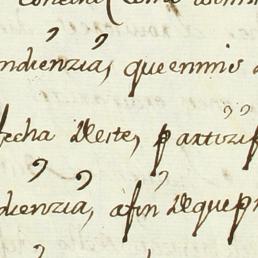 ndienzia, queenmio
fecha deste, partozip
dienzia, afin dequepr